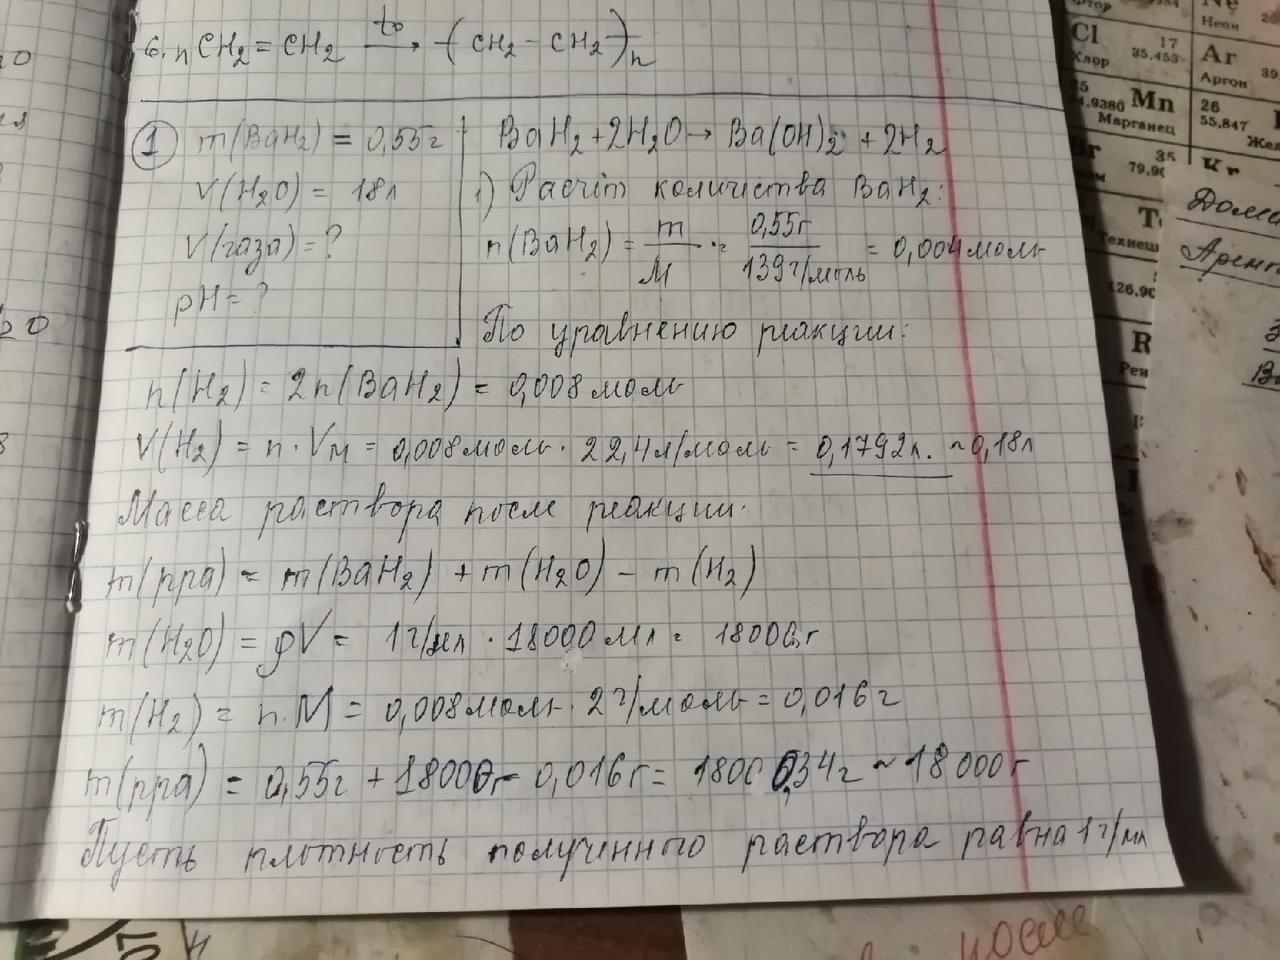 6. nCH₂ = CH₂ —t⁰→ (-CH₂ - CH₂)n
① m(BaH₂) = 0,55г
V(H₂O) = 18л
V(газа) = ?
pH = ?
BaH₂ + 2H₂O → Ba(OH)₂ + 2H₂
1) Расчёт количества BaH₂:
n(BaH₂) = m/M = 0,55г/139г/моль = 0,004моль
По уравнению реакции:
n(H₂) = 2n(BaH₂) = 0,008моль
V(H₂) = n · Vм = 0,008моль · 22,4л/моль = 0,1792л. ~ 0,18л
Масса раствора после реакции:
m(рра) = m(BaH₂) + m(H₂O) - m(H₂)
m(H₂O) = ρV = 1г/мл · 18000мл = 18000г
m(H₂) = n · M = 0,008моль · 2г/моль = 0,016г
m(рра) = 0,55г + 18000г - 0,016г = 18000,34г ~ 18000г
Пусть плотность полученного раствора равна 1г/мл
Cl 17
Хлор 35,453
Неон
Ar
Аргон 39,
Mn
Марганец
26
55,847
79,90
126,90
после